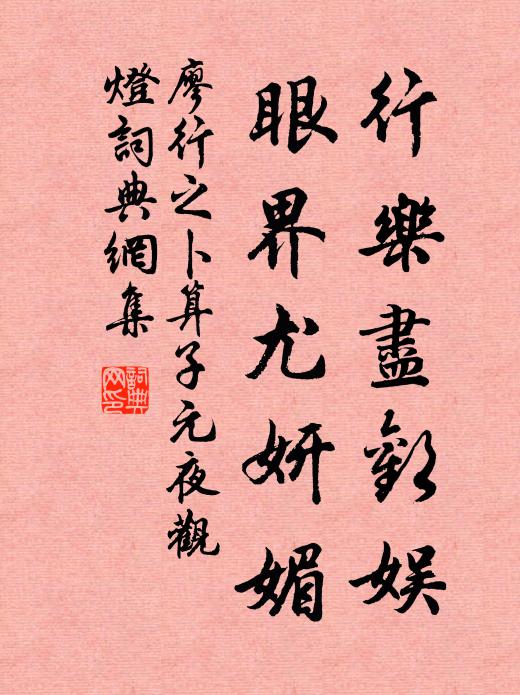 行樂盡歡娱
眼界尤妍媚
廖行之卜算子元夜觀
燈詞典網集
詞典網印